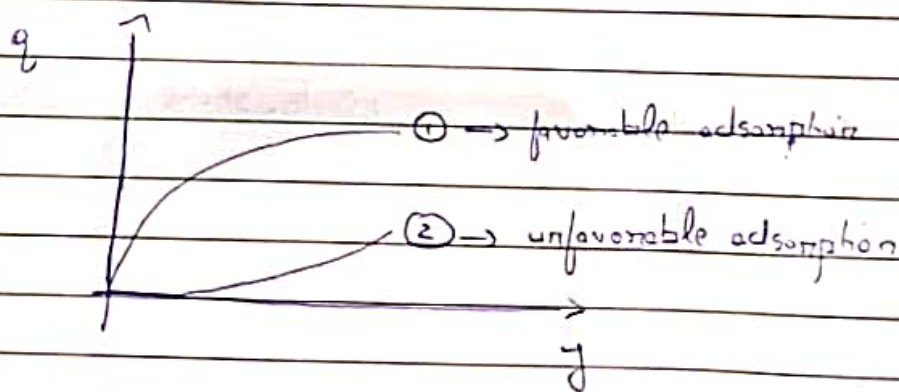 q
① → favorable adsorption
② → unfavorable adsorption
y